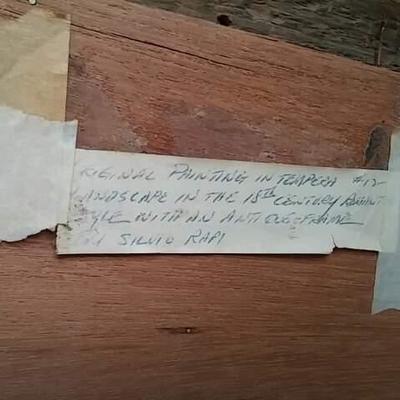 RIGINAL PAINTING IN TEMPERA #12
ANDSCAPE IN THE 18TH CENTURY
YLE WITH AN ANTIQUE FRAME
BY SILVIO RAPI